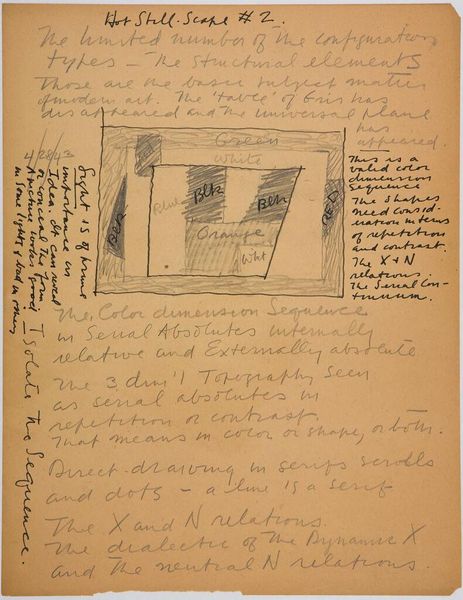 Hot Still-Scape #2.
The limited number of the configuration
types — The structural elements
Those are the basic subject matter
of modern art. The 'table' of Gris has
disappeared and the universal plane
has
appeared.
4/28/43
Green
White
Blue
Blk
Blk
Orange
Wht
RED
RED
This is a
valid color
dimension
sequence
The shapes
need consid-
eration in terms
of repetition
and contrast.
The X + N
relations.
The Serial Con-
tinuum.
Light is of prime
importance in
Idea. It can reveal
or conceal the form
looks good
in some lights & bad in others
Isolate the Sequence.
The Color dimension Sequence
in Serial Absolutes internally
relative and Externally absolute
The 3 dim'l Topography seen
as serial absolutes in
repetition or contrast.
That means in color or shape, or both.
Direct-drawing in serifs scrolls
and dots — a line is a serif
The X and N relations.
The dialectic of the Dynamic X
and the neutral N relations.